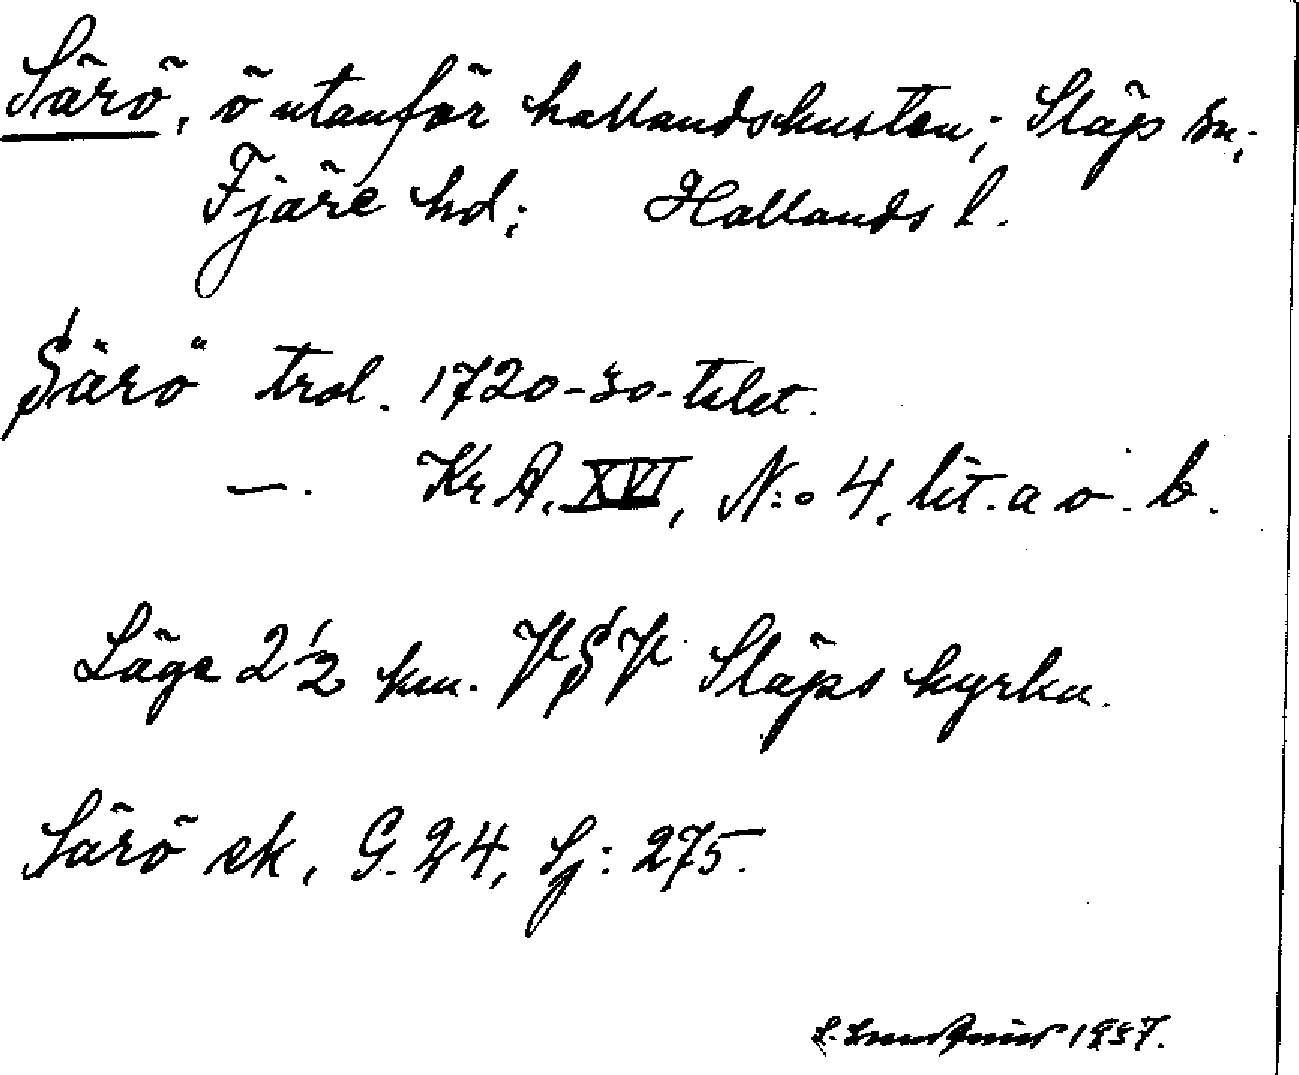 Särö, ö utanför hallandskusten; Släp sn;
Fjäre hd; Hallands l.
Särö trol. 1720-30-talet.
—. Kr A. XVI, N:o 4, lit. a o. b.
Läge 2 1/2 km. VSV Släps kyrka.
Särö ek, G. 24, Sj: 275.
1937.